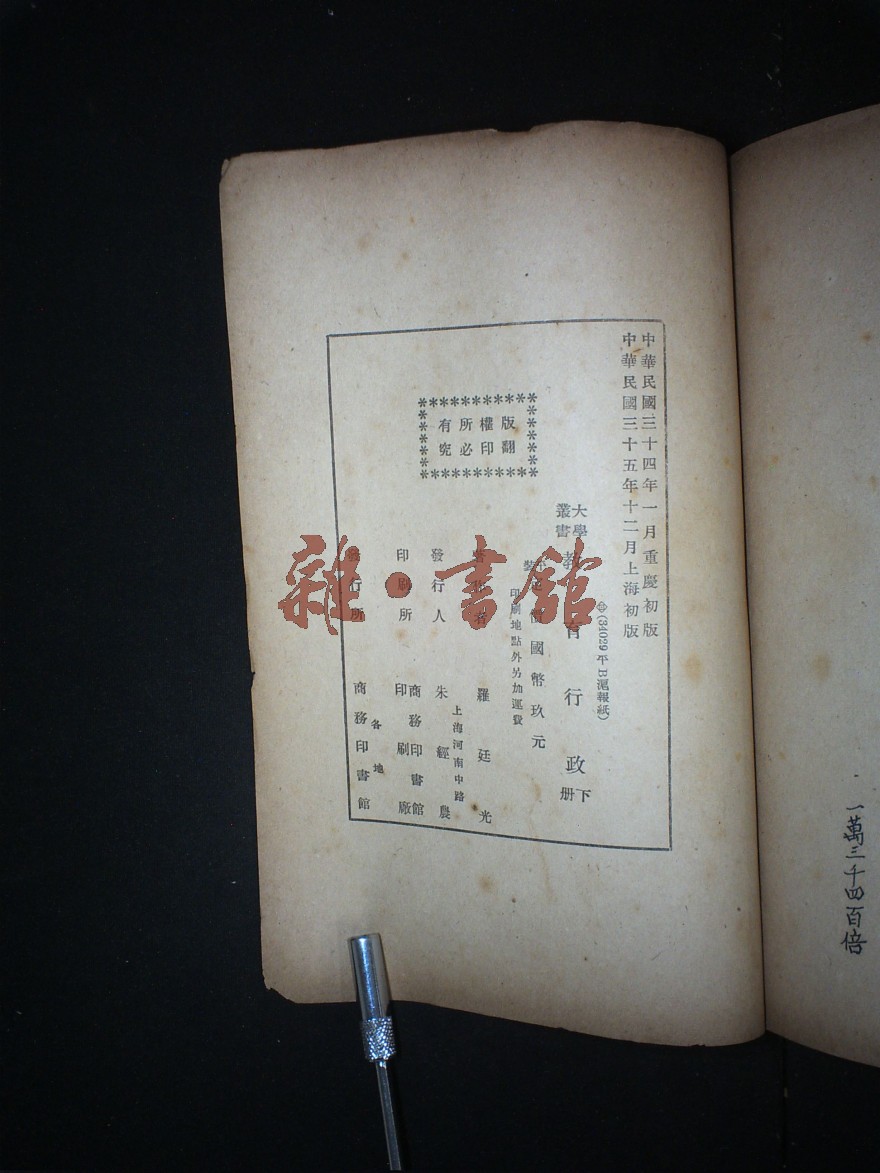 中華民國三十四年一月重慶初版
中華民國三十五年十二月上海初版
(34029平B滬報紙)
大學
叢書
教育行政
下
册
定價國幣玖元
印刷地點外另加運費
版權所有
翻印必究
羅廷光
上海河南中路
發行人 朱經農
印刷所 商務印書館
印刷廠
行所 各地
商務印書館
一萬三千四百倍
雜·書館